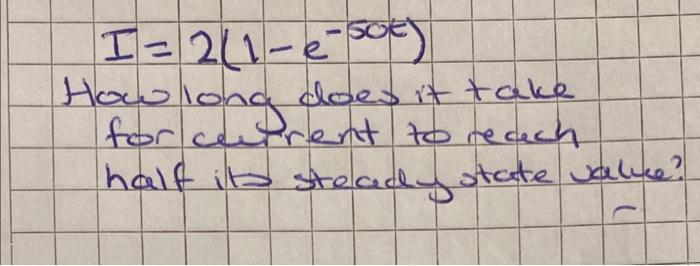 I = 2(1-e^-50t)
How long does it take
for current to reach
half its steady state value?